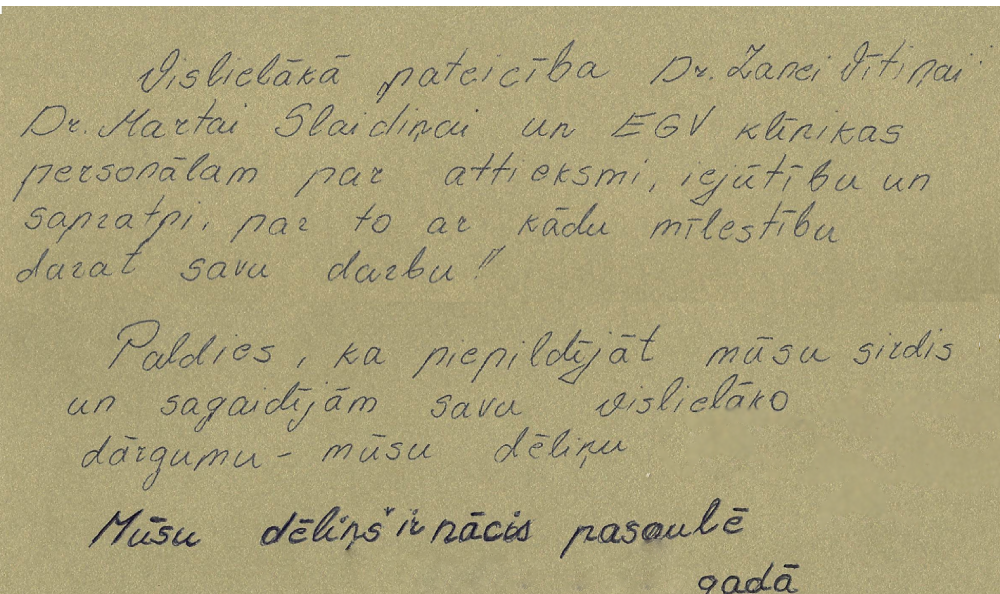 Vislielākā pateicība Dr. Zanei Vītiņai
Dr. Martai Slaidiņai un EGV klīnikas
personālam par attieksmi, iejūtību un
sapratņi, par to ar kādu mīlestību
darat savu darbu!
Paldies, ka piepildījāt mūsu sirdis
un sagaidījām savu vislielāko
dārgumu - mūsu dēliņu
Mūsu dēliņš ir nācis pasaulē
gadā